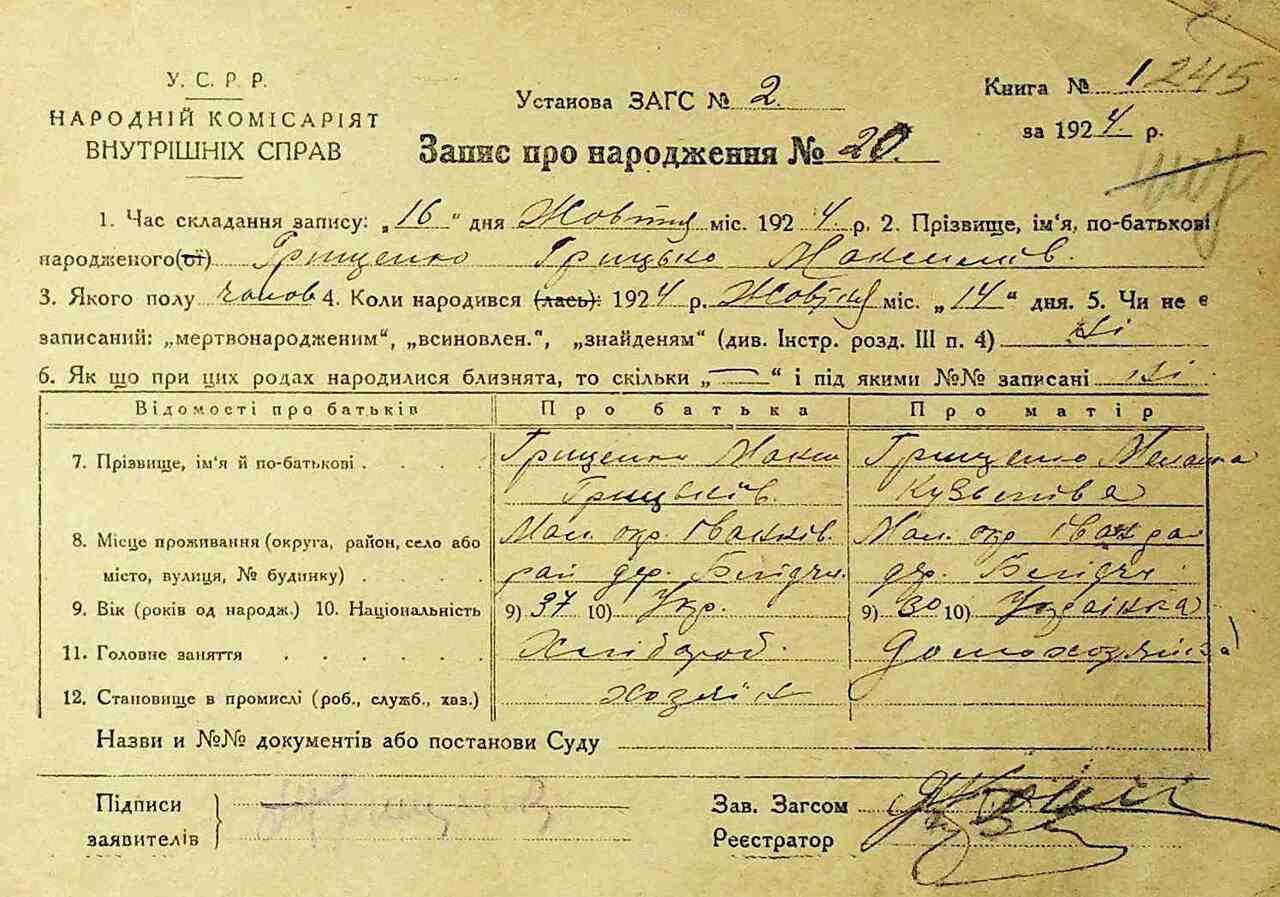 У. С. Р. Р.
НАРОДНІЙ КОМІСАРІЯТ
ВНУТРІШНІХ СПРАВ
Установа ЗАГС № 2.
Запис про народження № 20.
Книга № 1245
за 1924 р.
1. Час складання запису: „16“ дня Жовтня міс. 1924 р. 2. Прізвище, ім‘я, по-батькові
народженого(ої) Грищенко Грицько Максимів.
3. Якого полу чолов 4. Коли народився (лась): 1924 р. Жовтня міс. „14“ дня. 5. Чи не є
записаний: „мертвонародженим“, „всиновлен.“, „знайденям“ (див. Інстр. розд. III п. 4) Ні
6. Як що при цих родах народилися близнята, то скільки „—“ і під якими №№ записані ні
Відомості про батьків Про батька Про матір
7. Прізвище, ім‘я й по-батькові . . . . Грищенко Макси Грищенко Меланка
Грицьків. Кузьмівна
8. Місце проживання (округа, район, село або Мал. окр. Іванків. Мал. окр Іванк
місто, вулиця, № будинку) . . . . рай дер. дер.
9. Вік (років од народж.) 10. Національність 9) 37 10) Укр. 9) 30 10) Українка
11. Головне заняття . . . . . . Хлібороб. Домохозяйка
12. Становище в промислі (роб., служб., хаз.) хозяїн
Назви и №№ документів або постанови Суду
Підписи
заявителів
Зав. Загсом
Реєстратор